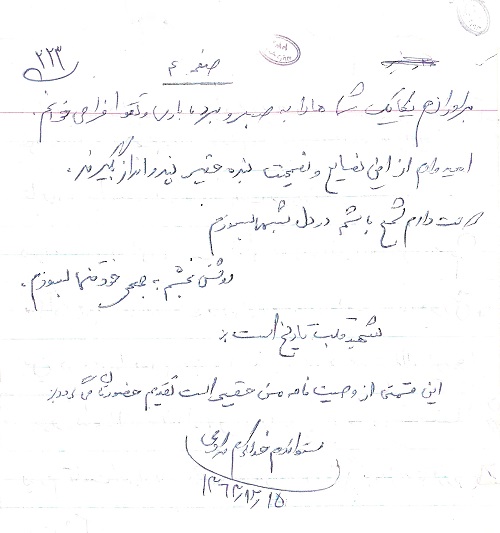 ۲۲۳
صفحه ۴
برادرانم یکایک شما ها را به صبر و بردباری و تقوا فرا می خوانم.
امیدوارم از این نصایح و نصیحت بنده حقیر پند و اندرز گیرند.
دوست دارم شمع باشم در دل شبها بسوزم
روشنی بخشم به جمعی خود تنها بسوزم.
شهید قلب تاریخ است:
این قسمتی از وصیت نامه من حقیر است تقدیم حضورتان می گردد:
خداکرم
۱۳۶۳/۱۲/۱۵